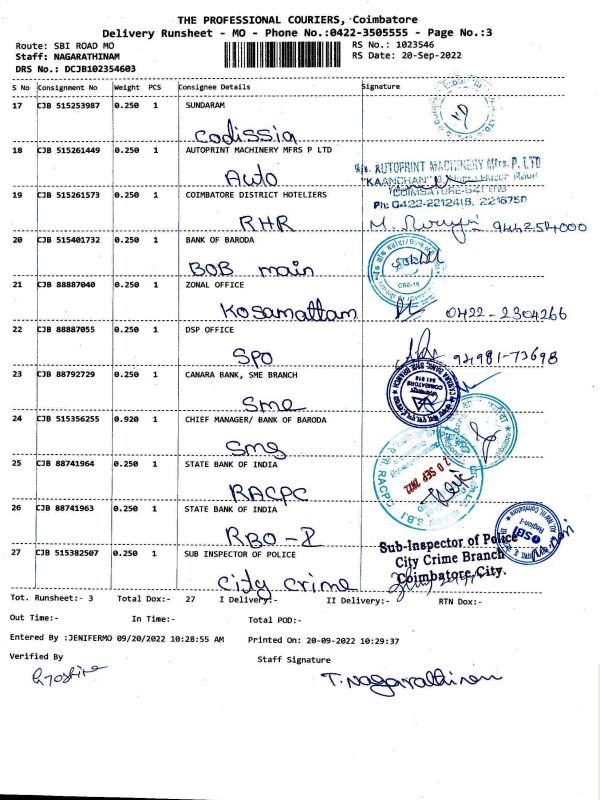 THE PROFESSIONAL COURIERS, Coimbatore
Delivery Runsheet - MO - Phone No.:0422-3505555 - Page No.:3
Route: SBI ROAD MO
RS No.: 1023546
Staff: NAGARATHINAM
RS Date: 20-Sep-2022
DRS No.: DCJB102354603
S No Consignment No Weight PCS Consignee Details Signature
17 CJB 515253987 0.250 1 SUNDARAM
Codissia
18 CJB 515261449 0.250 1 AUTOPRINT MACHINERY MFRS P LTD
Auto
AUTOPRINT MACHINERY Mfrs. P. LTD
"KAANCHAN"
COIMBATORE-641 018
Ph: 0422-2212418, 2216750
19 CJB 515261573 0.250 1 COIMBATORE DISTRICT HOTELIERS
RHR
9442254000
20 CJB 515401732 0.250 1 BANK OF BARODA
BOB main
21 CJB 88887040 0.250 1 ZONAL OFFICE
Kosamattam 0422-2304266
22 CJB 88887055 0.250 1 DSP OFFICE
SPO 94981-73698
23 CJB 88792729 0.250 1 CANARA BANK, SME BRANCH
Sme
24 CJB 515356255 0.920 1 CHIEF MANAGER/ BANK OF BARODA
Sms
25 CJB 88741964 0.250 1 STATE BANK OF INDIA
RACPC
20 SEP 2022
RACPC
26 CJB 88741963 0.250 1 STATE BANK OF INDIA
RBO-I
SBI
27 CJB 515382507 0.250 1 SUB INSPECTOR OF POLICE
City Crime
Sub-Inspector of Police
City Crime Branch
Coimbatore City.
Tot. Runsheet:- 3 Total Dox:- 27 I Delivery:- II Delivery:- RTN Dox:-
Out Time:- In Time:- Total POD:-
Entered By :JENIFERMO 09/20/2022 10:28:55 AM Printed On: 20-09-2022 10:29:37
Verified By Staff Signature
T. Nagarathinam